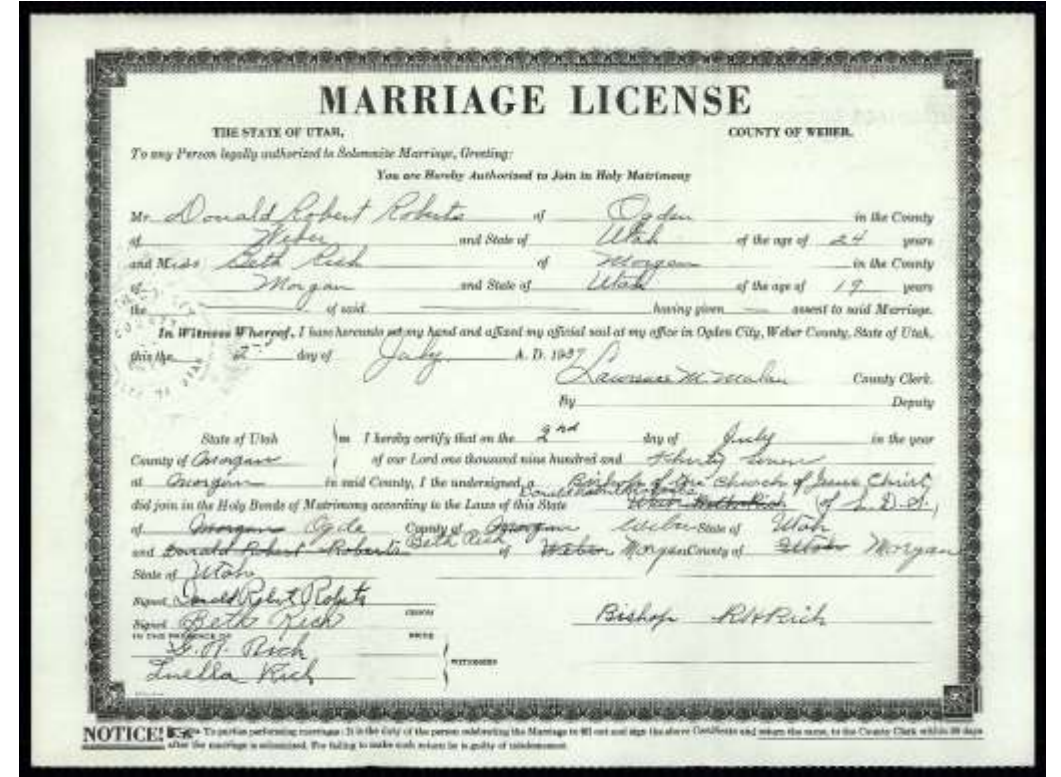 MARRIAGE LICENSE
THE STATE OF UTAH, COUNTY OF WEBER.
To any Person legally authorized to Solemnize Marriage, Greeting:
You are Hereby Authorized to Join in Holy Matrimony
Mr. Donald Robert Roberts of Ogden in the County
of Weber and State of Utah of the age of 24 years
and Miss Beth Rich of Morgan in the County
of Morgan and State of Utah of the age of 19 years
the of said having given assent to said Marriage.
In Witness Whereof, I have hereunto set my hand and affixed my official seal at my office in Ogden City, Weber County, State of Utah,
this the 2 day of July A. D. 1937
Lawrence M. Malan County Clerk.
By Deputy
State of Utah ss I hereby certify that on the 2nd day of July in the year
County of Morgan of our Lord one thousand nine hundred and thirty seven
at Morgan in said County, I the undersigned, a Bishop of the Church of Jesus Christ
Donald Robert Roberts
did join in the Holy Bonds of Matrimony according to the Laws of this State of L.D.S,
of Morgan Ogde County of Morgan Weber State of Utah
and Donald Robert Roberts Beth Rich of Weber Morgan County of Utah Morgan
State of Utah
Signed Donald Robert Roberts GROOM
Signed Beth Rich BRIDE
Bishop R H Rich
IN THE PRESENCE OF
G. H. Rich
Luella Rich
WITNESSES
NOTICE! To parties performing marriage: It is the duty of the person celebrating the Marriage to fill out and sign the above Certificate and return the same, to the County Clerk within 30 days
after the marriage is solemnized. For failing to make such return he is guilty of misdemeanor.